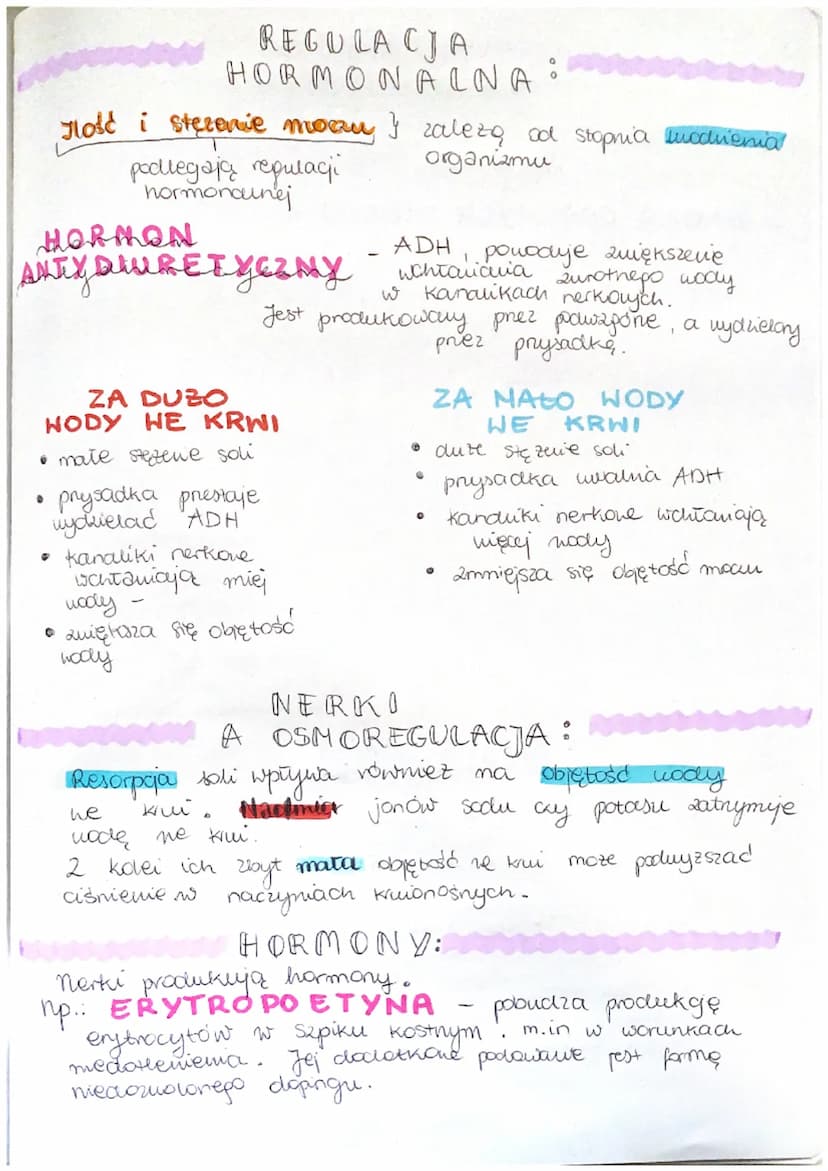 REGULACJA
HORMONALNA:
Ilość i stężenie moczu } zależą od stopnia uwodnienia
organizmu
podlegają regulacji
hormonalnej
HORMON
ANTYDIURETYCZNY - ADH, powoduje zwiększenie
wchłaniania zwrotnego wody
w kanalikach nerkowych.
Jest produkowany przez podwzgórze, a wydzielany
przez przysadkę.
ZA DUŻO
WODY WE KRWI
• małe stężenie soli
• przysadka przestaje
wydzielać ADH
• kanaliki nerkowe
wchłaniają mniej
wody -
• zwiększa się objętość
wody
ZA MAŁO WODY
WE KRWI
• duże stężenie soli
• przysadka uwalnia ADH
• kanaliki nerkowe wchłaniają
więcej wody
• zmniejsza się objętość moczu
NERKI
A OSMOREGULACJA:
Resorpcja soli wpływa również na objętość wody
we krwi. Nadmiar jonów sodu czy potasu zatrzymuje
wodę we krwi.
Z kolei ich zbyt mała objętość we krwi może podwyższać
ciśnienie w naczyniach krwionośnych.
HORMONY:
Nerki produkują hormony.
np.: ERYTROPOETYNA - pobudza produkcję
erytrocytów w szpiku kostnym. m.in w warunkach
niedotlenienia. Jej dodatkowe podawanie jest formą
niedozwolonego dopingu.